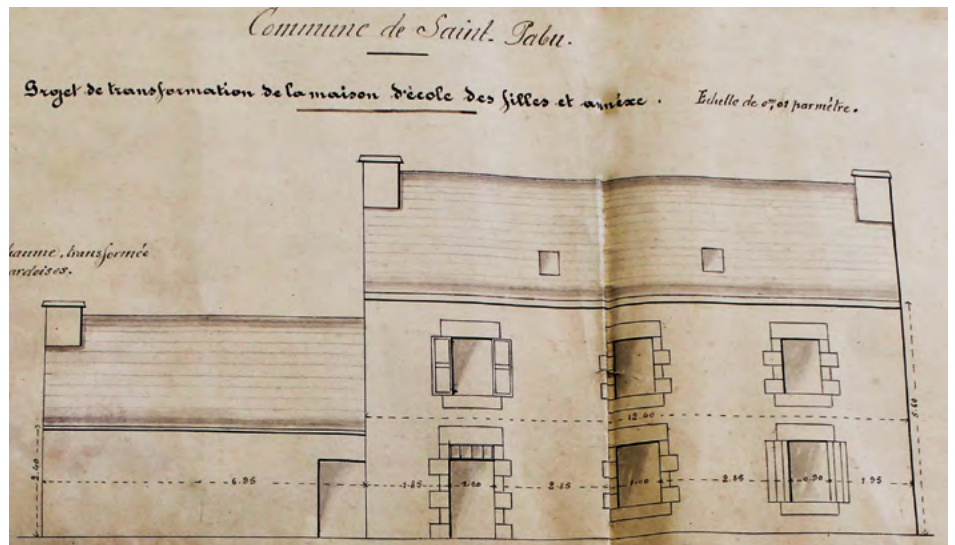 Commune de Saint-Pabu.
Projet de transformation de la maison d'école des filles et annèxe. Echelle de 0m,01 par mètre.
haume, transformée
ardoises.
12.40
5.60
2.40
6.95
1.85
1.00
2.85
1.00
2.85
0.90
1.95